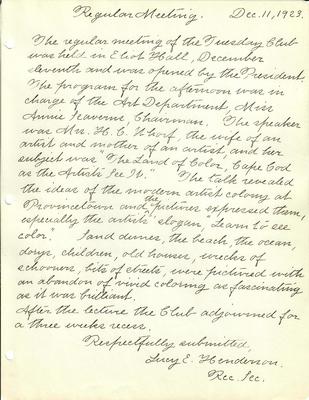 Regular Meeting. Dec. 11, 1923.
The regular meeting of the Tuesday Club
was held in Eliot Hall, December
eleventh and was opened by the President.
The program for the afternoon was in
charge of the Art Department, Miss
Annie Seaverns, Chairman. The speaker
was Mrs. H. C. Whorf, the wife of an
artist and mother of an artist, and her
subject was "The Land of Color, Cape Cod
as the Artists See It." The talk revealed
the ideas of the modern artist colony at
Provincetown and the pictures expressed them,
especially the artists' slogan, "Learn to see
color." Sand dunes, the beach, the ocean,
dogs, children, old houses, wrecks of
schooners, bits of streets, were pictured with
an abandon of vivid coloring as fascinating
as it was brilliant.
After the lecture the Club adjourned for
a three weeks recess.
Respectfully submitted,
Lucy E. Henderson.
Rec. Sec.